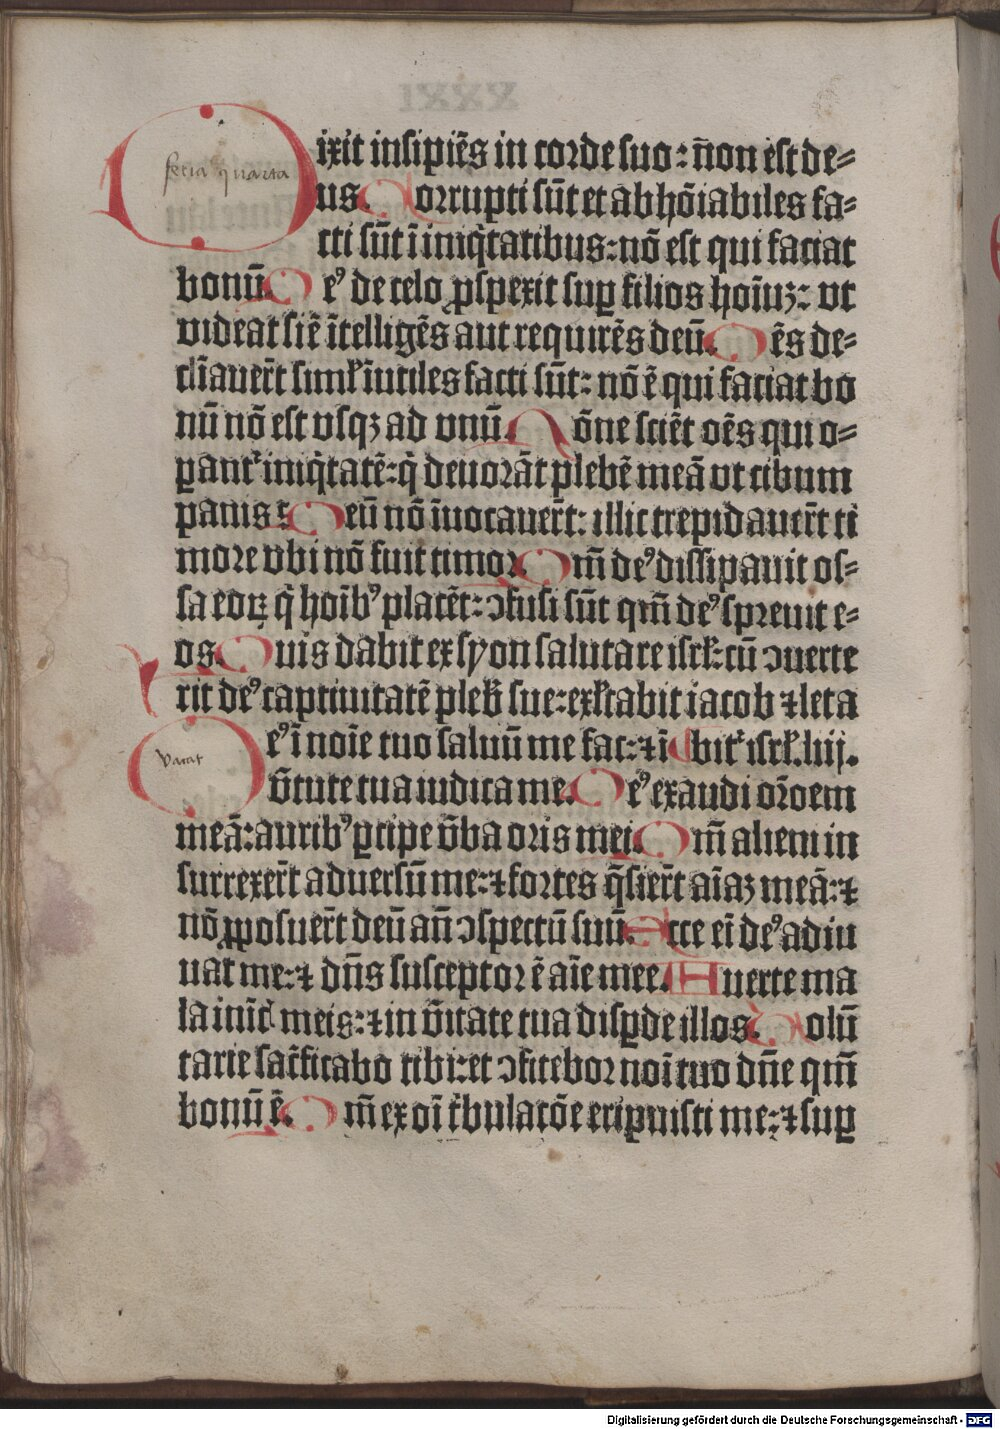 feria quarta
Dixit insipiēs in corde suo: n̄on est de⸗
us. Corrupti sūt et abhōiabiles fa⸗
cti sūt ī iniq̄tatibus: nō est qui faciat
bonū. Deꝰ de celo ꝓspexit suꝑ filios hoīuꝫ: vt
videat si ē ītelligēs aut requirēs deū. Oēs de⸗
clīauer̄t simƚ īutiles facti sūt: nō ē qui faciat bo
nū nō est vsqꝫ ad vnū. Nōne sciēt oēs qui o⸗
ꝑant᷑ iniq̄tatē: q̄ deuorāt plebē meā vt cibum
panis: Deū nō īuocauer̄t: illic trepidauer̄t ti
more vbi nō fuit timor. Qm̄ deꝰ dissipauit os⸗
sa eoꝝ q̄ hoībꝰ placēt: ↄfusi sūt qm̄ deꝰ spreuit e⸗
os. Quis dabit ex syon salutare isrƚ: cū ↄuerte
rit deꝰ captiuitatē pleb̄ sue: exƚtabit iacob ⁊ leta
Deꝰ ī noīe tuo saluū me fac: ⁊ ī bit᷑ isrƚ. liij.
vacat
v̄tute tua iudica me. Deꝰ exaudi or̄oem
meā: auribꝰ ꝑcipe v̄ba oris mei. Qm̄ alieni in
surrexer̄t aduersū me: ⁊ fortes q̄sier̄t aīaꝫ meā: ⁊
nō ꝓposuer̄t deū an̄ ↄspectū suū. Ecce eī deꝰ adiu
uat me: ⁊ dn̄s susceptor ē aīe mee. Auerte ma
la inīcꝭ meis: ⁊ in v̄itate tua disꝑde illos. Volū
tarie sac̄ficabo tibi: et ↄfitebor noī tuo dn̄e qm̄
bonū ē. Qm̄ ex oī t̄bulatōe eripuisti me: ⁊ suꝑ
Digitalisierung gefördert durch die Deutsche Forschungsgemeinschaft - DFG